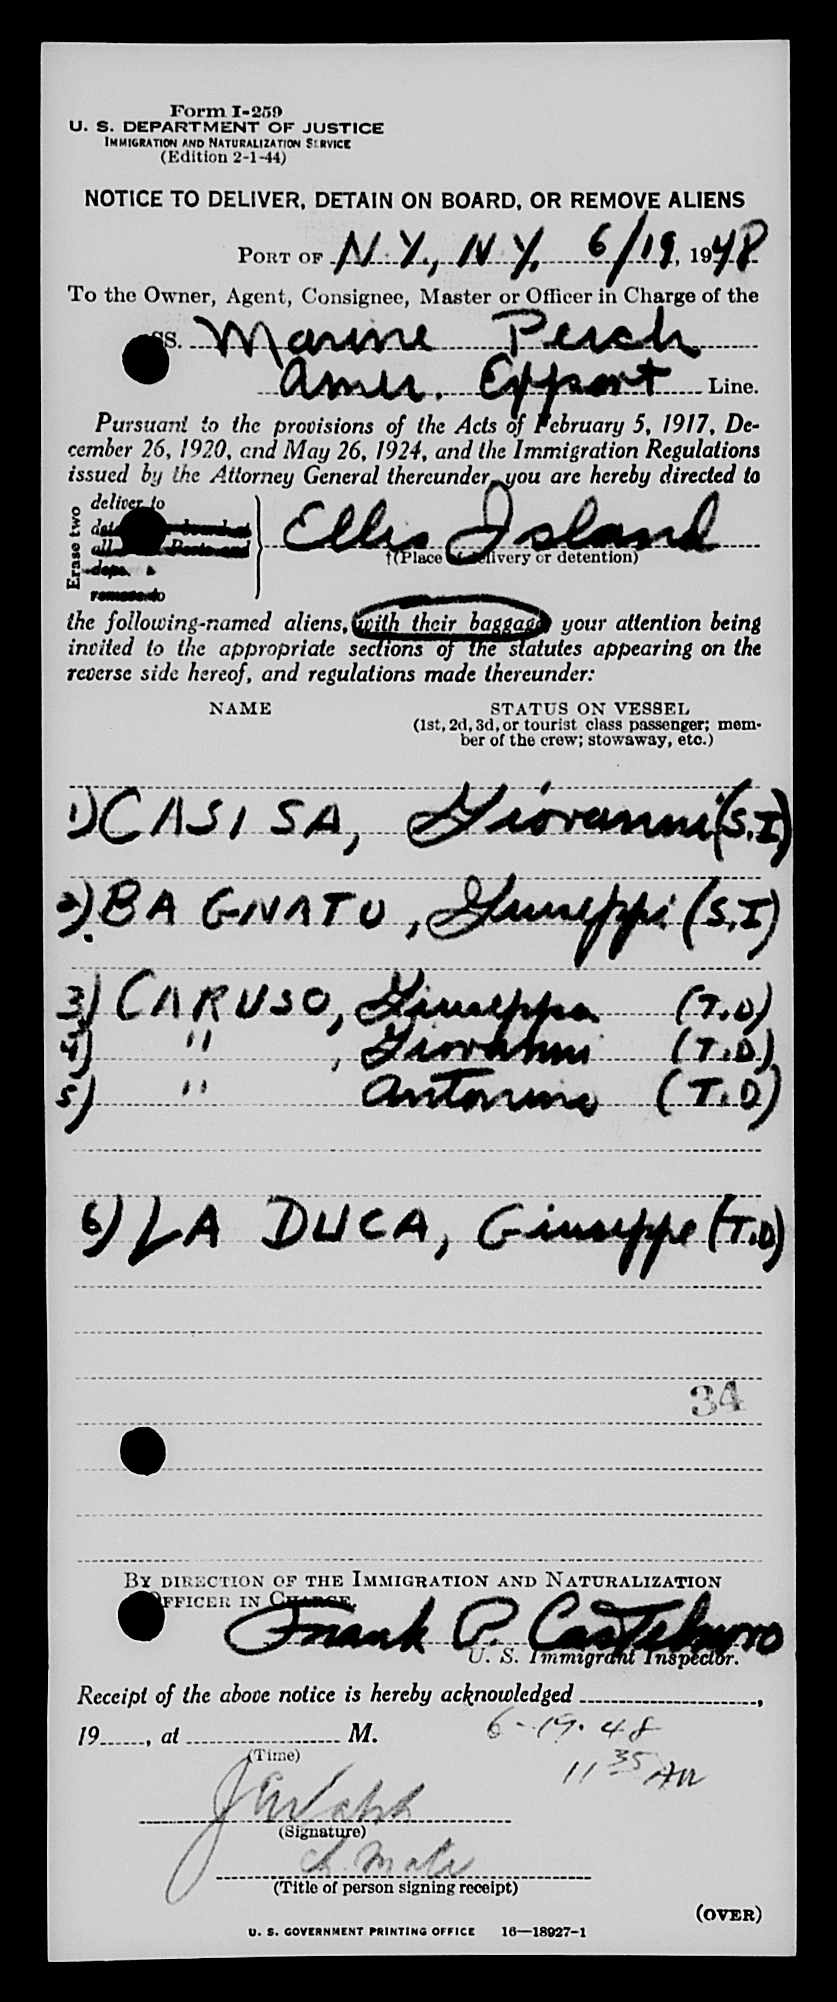 Form I-259
U. S. DEPARTMENT OF JUSTICE
IMMIGRATION AND NATURALIZATION SERVICE
(Edition 2-1-44)
NOTICE TO DELIVER, DETAIN ON BOARD, OR REMOVE ALIENS
PORT OF N.Y., N.Y. 6/19, 1948
To the Owner, Agent, Consignee, Master or Officer in Charge of the
SS. Marine Perch
Amer. Export Line.
Pursuant to the provisions of the Acts of February 5, 1917, De-
cember 26, 1920, and May 26, 1924, and the Immigration Regulations
issued by the Attorney General thereunder, you are hereby directed to
Erase two
deliver to
Ellis Island
†(Place of delivery or detention)
remove to
the following-named aliens, with their baggage your attention being
invited to the appropriate sections of the statutes appearing on the
reverse side hereof, and regulations made thereunder:
NAME STATUS ON VESSEL
(1st, 2d, 3d, or tourist class passenger; mem-
ber of the crew; stowaway, etc.)
1) CASISA, Giovanni (S.I)
2) BAGNATO, Giuseppi (S.I)
3) CARUSO, Giuseppa (T.D)
4) " , Giovanni (T.D)
5) " Antonino (T.D)
6) LA DUCA, Giuseppe (T.D)
34
BY DIRECTION OF THE IMMIGRATION AND NATURALIZATION
OFFICER IN CHARGE.
Frank P.
U. S. Immigrant Inspector.
Receipt of the above notice is hereby acknowledged ,
19 , at M. 6-19-48
(Time) 11 35 AM
(Signature)
Ch. Mate
(Title of person signing receipt)
(OVER)
U. S. GOVERNMENT PRINTING OFFICE 16—18927-1